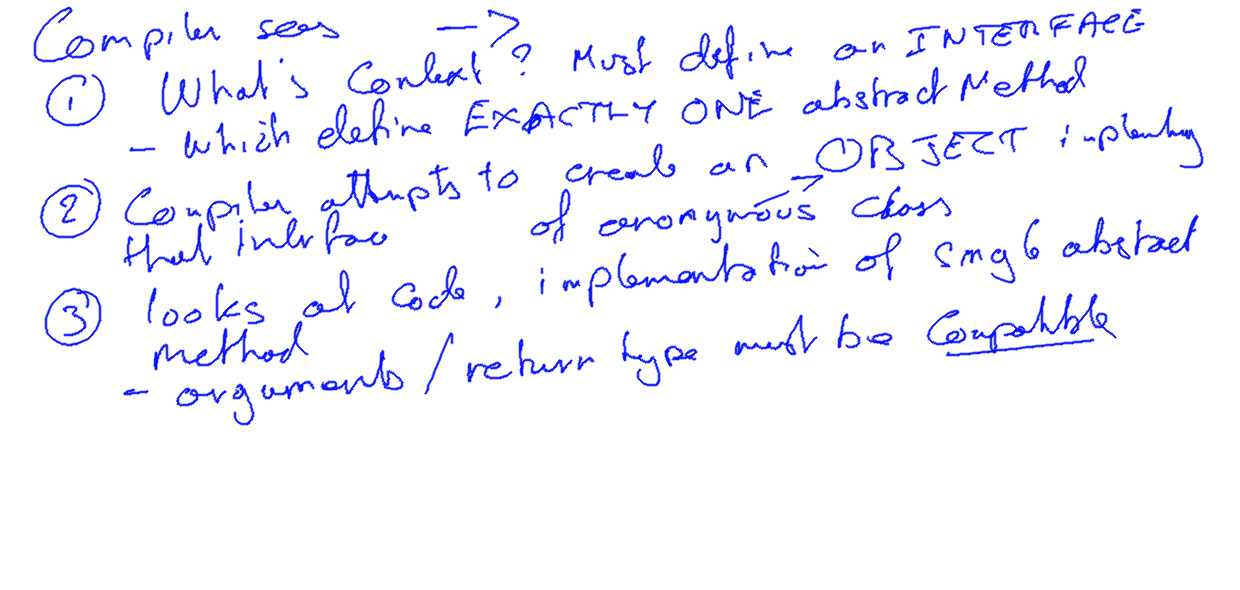 Compiler sees ->
① What's Context? Must define an INTERFACE
- which define EXACTLY ONE abstract Method
② Compiler attempts to create an OBJECT implementing
that interface of anonymous class
③ looks at code, implementation of single abstract
method
- arguments / return type must be Compatible